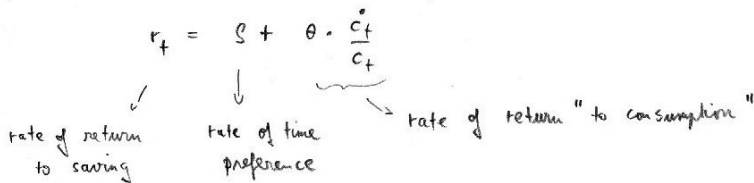 r_t = ρ + θ · ċ_t / c_t
rate of return
to saving
rate of time
preference
rate of return "to consumption"